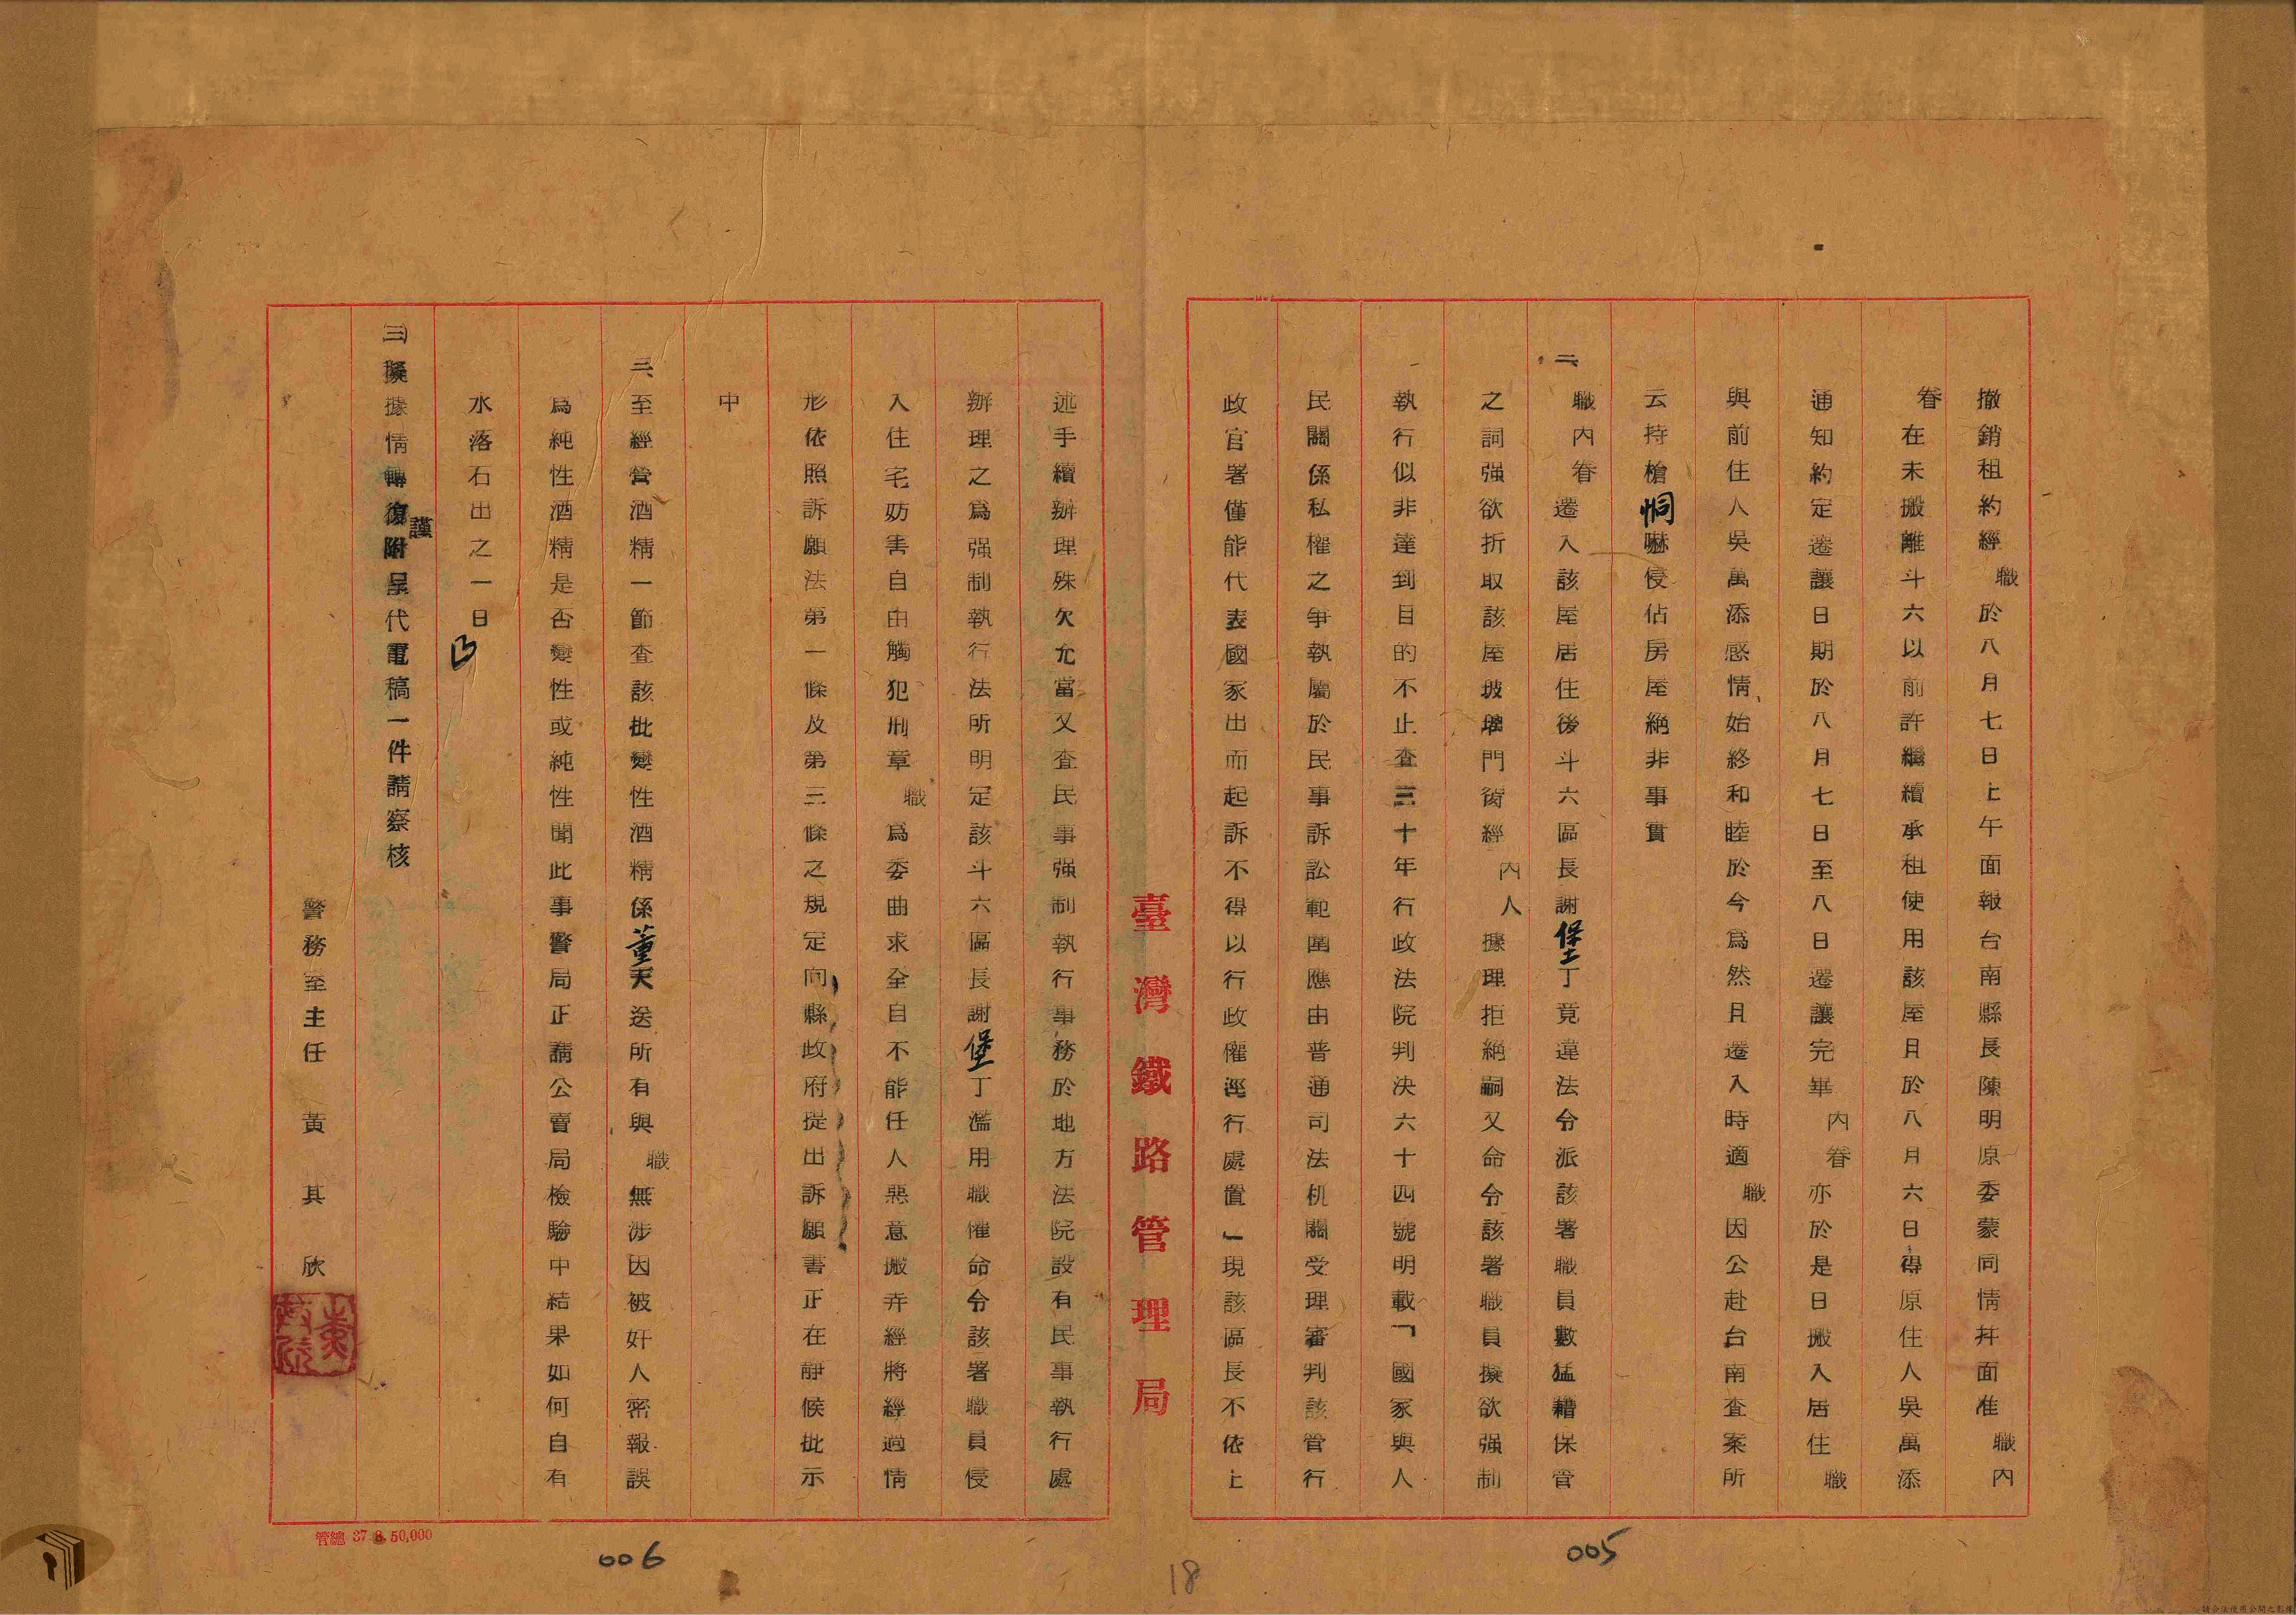 撤銷租約經職於八月七日上午面報台南縣長陳明原委蒙同情幷面准職內
眷在未搬離斗六以前許繼續承租使用該屋月於八月六日得原住人吳萬添
通知約定遷讓日期於八月七日至八日遷讓完畢內眷亦於是日搬入居住職
與前住人吳萬添感情始終和睦於今爲然月遷入時適職因公赴台南查案所
云持槍恫嚇侵佔房屋絕非事實
二、職內眷遷入該屋居住後斗六區長謝堡丁竟違法令派該署職員數猛藉保管
之詞强欲折取該屋玻璃門窗經內人據理拒絕嗣又命令該署職員擬欲强制
執行似非達到目的不止查三十年行政法院判決六十四號明載「國家與人
民關係私權之爭執屬於民事訴訟範圍應由普通司法机關受理審判該管行
政官署僅能代表國家出而起訴不得以行政權逕行處置」現該區長不依上
臺灣鐵路管理局
述手續辦理殊欠允當又查民事强制執行事務於地方法院設有民事執行處
辦理之爲强制執行法所明定該斗六區長謝堡丁濫用職權命令該署職員侵
入住宅妨害自由觸犯刑章職爲委曲求全自不能任人惡意搬弄經將經過情
形依照訴願法第一條及第三條之規定向縣政府提出訴願書正在靜候批示
中
三、至經營酒精一節查該批變性酒精係董天送所有與職無涉因被奸人密報誤
爲純性酒精是否變性或純性聞此事警局正請公賣局檢驗中結果如何自有
水落石出之一日
㈢擬據情轉復謹附呈代電稿一件請察核
警務室主任 黃其欣
管總 37. 8. 50,000
006
18
005